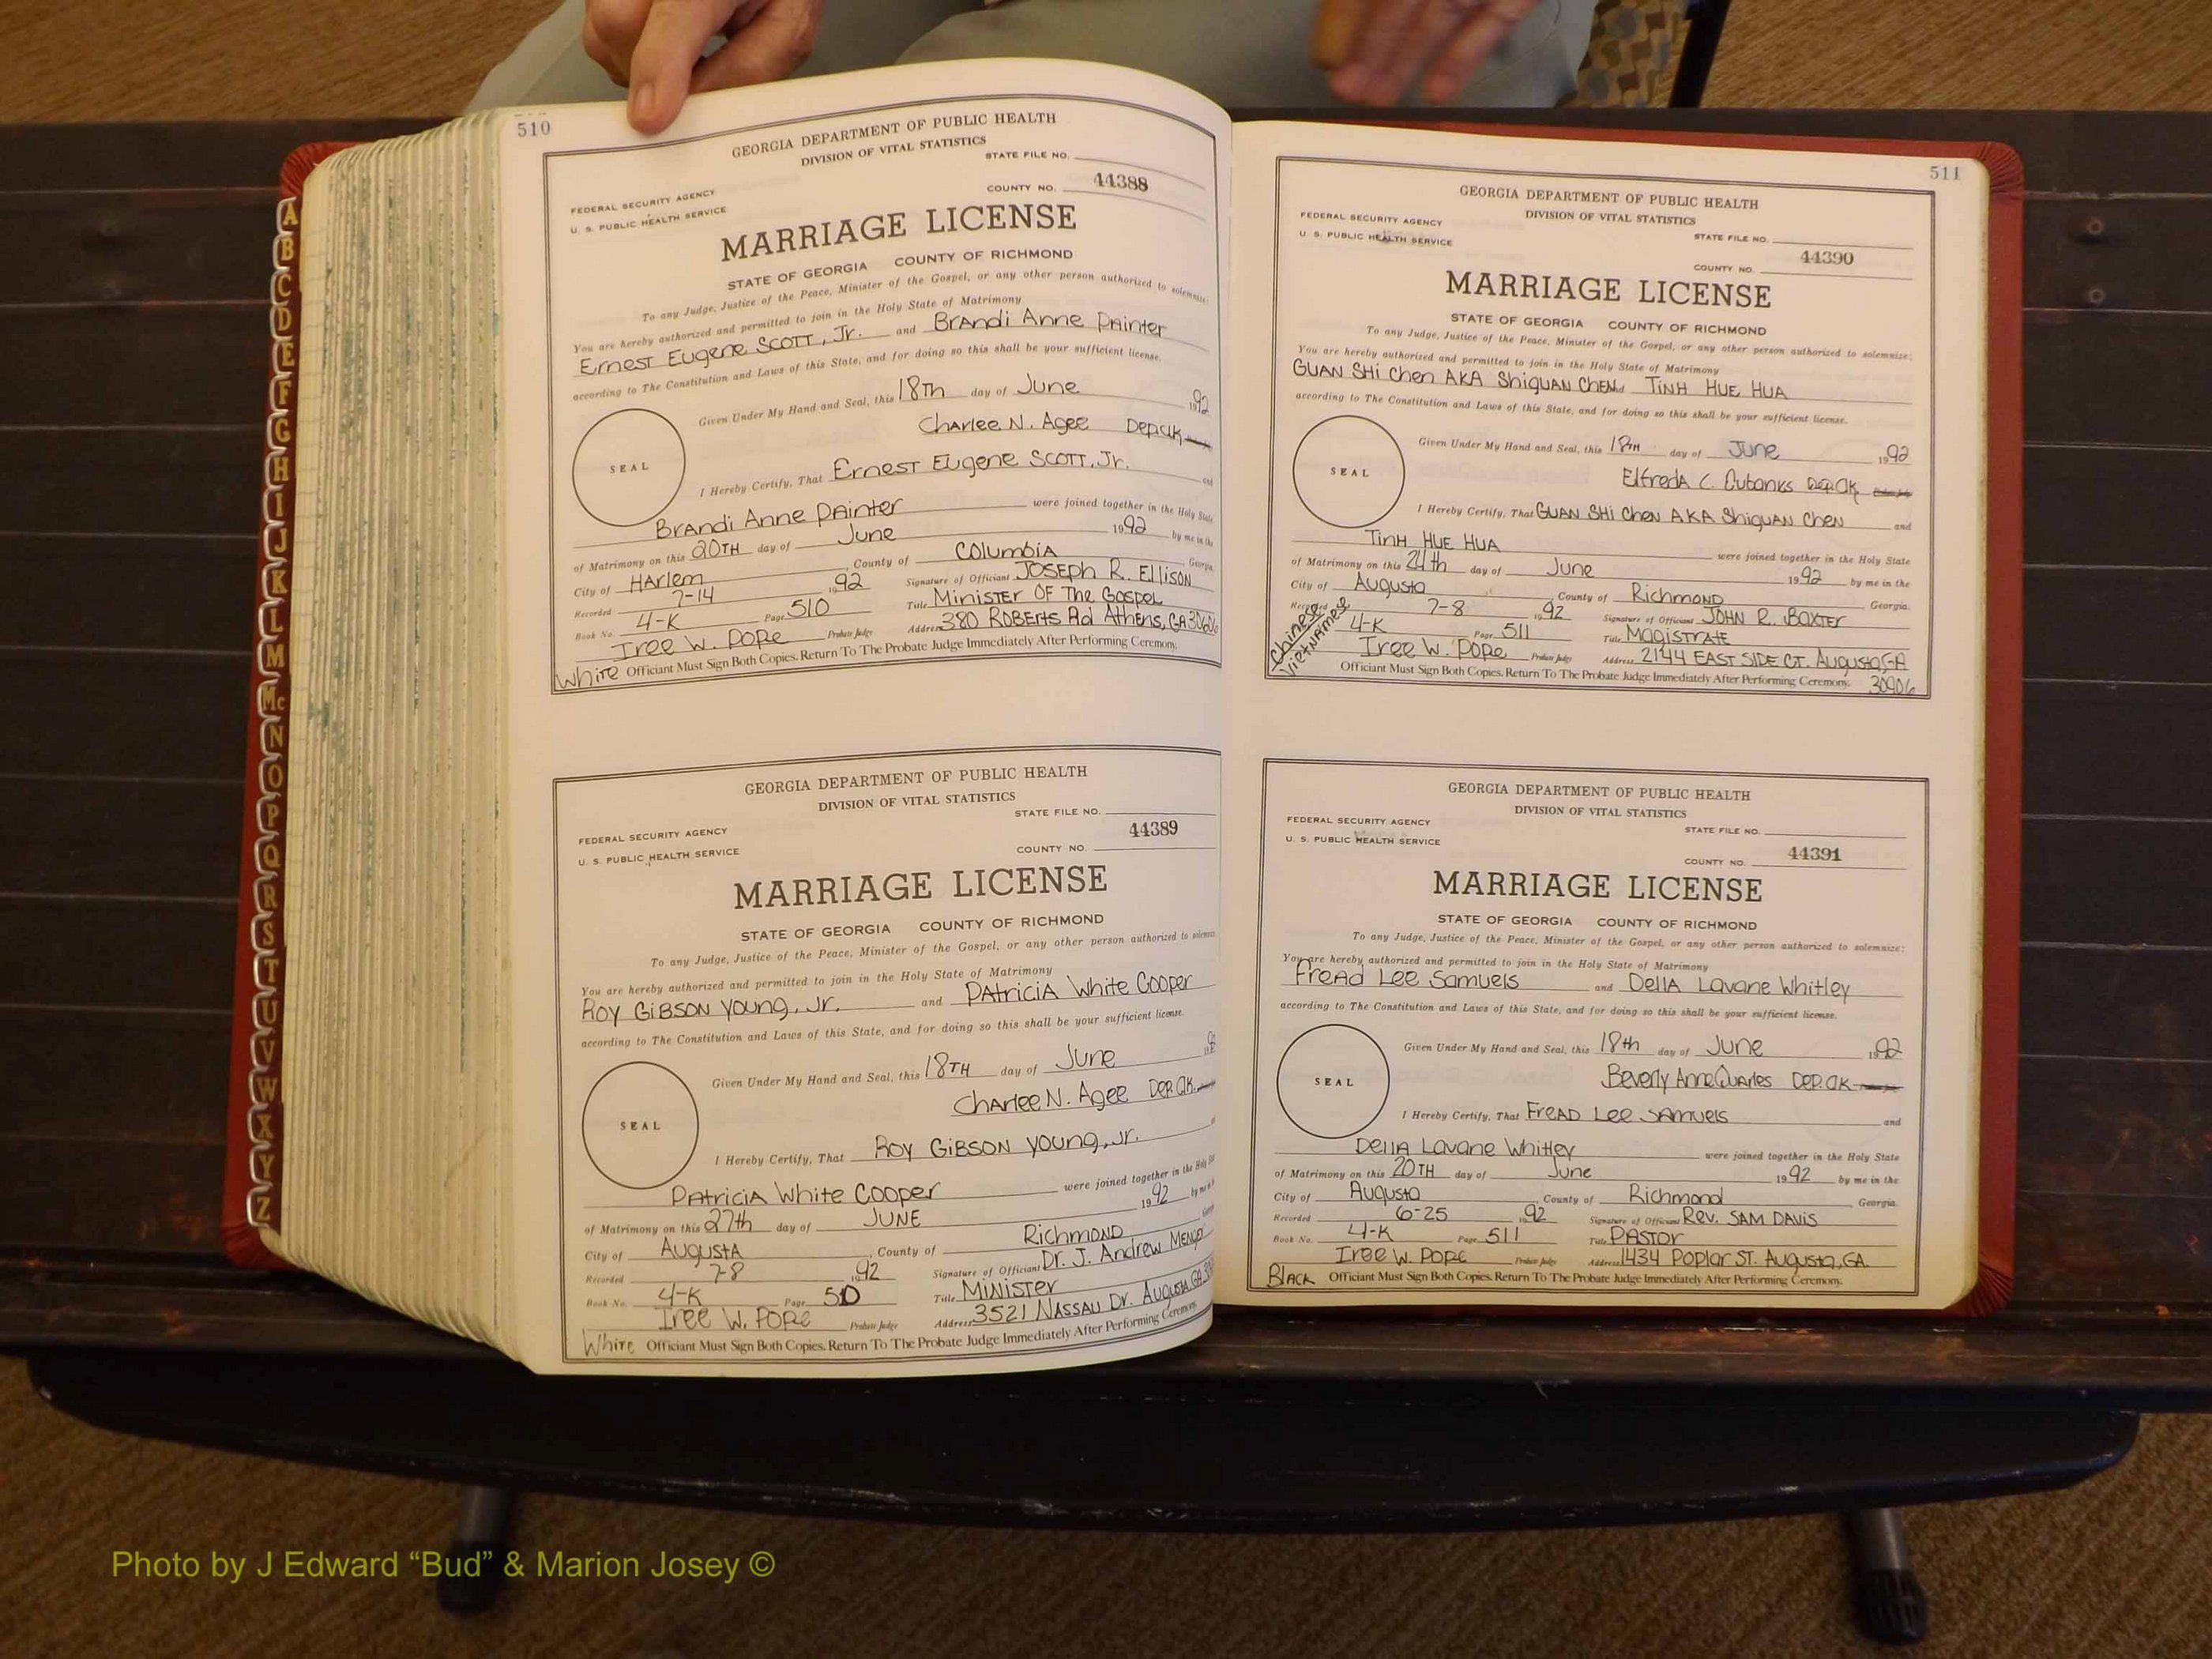 510
GEORGIA DEPARTMENT OF PUBLIC HEALTH
DIVISION OF VITAL STATISTICS
STATE FILE NO.
FEDERAL SECURITY AGENCY
U. S. PUBLIC HEALTH SERVICE
COUNTY NO. 44388
MARRIAGE LICENSE
STATE OF GEORGIA COUNTY OF RICHMOND
To any Judge, Justice of the Peace, Minister of the Gospel, or any other person authorized to solemnize:
You are hereby authorized and permitted to join in the Holy State of Matrimony
Ernest Eugene Scott, Jr. and Brandi Anne Painter
according to The Constitution and Laws of this State, and for doing so this shall be your sufficient license.
Given Under My Hand and Seal, this 18TH day of June 1992
Charlee N. Agee Dep.Clk
SEAL
I Hereby Certify, That Ernest Eugene Scott, Jr. and
Brandi Anne Painter were joined together in the Holy State
of Matrimony on this 20TH day of June 1992 by me in the
City of Harlem, County of Columbia, Georgia.
Recorded 7-14 1992 Signature of Officiant Joseph R. Ellison
Book No. 4-K Page 510 Title Minister Of The Gospel
Iree W. Pope Probate Judge Address 380 Roberts Rd Athens, GA 30606
White Officiant Must Sign Both Copies. Return To The Probate Judge Immediately After Performing Ceremony.
GEORGIA DEPARTMENT OF PUBLIC HEALTH
DIVISION OF VITAL STATISTICS
STATE FILE NO.
FEDERAL SECURITY AGENCY
U. S. PUBLIC HEALTH SERVICE
COUNTY NO. 44389
MARRIAGE LICENSE
STATE OF GEORGIA COUNTY OF RICHMOND
To any Judge, Justice of the Peace, Minister of the Gospel, or any other person authorized to solemnize
You are hereby authorized and permitted to join in the Holy State of Matrimony
Roy Gibson Young, Jr. and Patricia White Cooper
according to The Constitution and Laws of this State, and for doing so this shall be your sufficient license.
Given Under My Hand and Seal, this 18TH day of June
Charlee N. Agee Dep.Clk.
SEAL
I Hereby Certify, That Roy Gibson Young, Jr.
Patricia White Cooper were joined together in the Holy
of Matrimony on this 27th day of JUNE 1992 by me in
City of Augusta, County of Richmond
Recorded 7-8 1992 Signature of Officiant Dr. J. Andrew
Book No. 4-K Page 510 Title Minister
Iree W. Pope Probate Judge Address 3521 Nassau Dr. Augusta, GA
White Officiant Must Sign Both Copies. Return To The Probate Judge Immediately After Performing Ceremony.
511
GEORGIA DEPARTMENT OF PUBLIC HEALTH
DIVISION OF VITAL STATISTICS
FEDERAL SECURITY AGENCY
U. S. PUBLIC HEALTH SERVICE
STATE FILE NO.
COUNTY NO. 44390
MARRIAGE LICENSE
STATE OF GEORGIA COUNTY OF RICHMOND
To any Judge, Justice of the Peace, Minister of the Gospel, or any other person authorized to solemnize:
You are hereby authorized and permitted to join in the Holy State of Matrimony
Guan Shi Chen AKA Shiguan Chen and Tinh Hue Hua
according to The Constitution and Laws of this State, and for doing so this shall be your sufficient license.
Given Under My Hand and Seal, this 18TH day of June 1992
Elfreda C. Eubanks Dep Clk
SEAL
I Hereby Certify, That Guan Shi Chen AKA Shiguan Chen and
Tinh Hue Hua were joined together in the Holy State
of Matrimony on this 24th day of June 1992 by me in the
City of Augusta, County of Richmond Georgia.
Recorded 7-8 1992 Signature of Officiant John R. Baxter
4-K Page 511 Title Magistrate
Iree W. Pope Probate Judge Address 2144 East Side Ct. Augusta, GA
Chinese
Vietnamese
Officiant Must Sign Both Copies. Return To The Probate Judge Immediately After Performing Ceremony. 30906
GEORGIA DEPARTMENT OF PUBLIC HEALTH
DIVISION OF VITAL STATISTICS
FEDERAL SECURITY AGENCY
U. S. PUBLIC HEALTH SERVICE
STATE FILE NO.
COUNTY NO. 44391
MARRIAGE LICENSE
STATE OF GEORGIA COUNTY OF RICHMOND
To any Judge, Justice of the Peace, Minister of the Gospel, or any other person authorized to solemnize:
You are hereby authorized and permitted to join in the Holy State of Matrimony
Fread Lee Samuels and Della Lavane Whitley
according to The Constitution and Laws of this State, and for doing so this shall be your sufficient license.
Given Under My Hand and Seal, this 18th day of June 1992
Beverly Anne Quarles Dep.Clk
SEAL
I Hereby Certify, That Fread Lee Samuels and
Della Lavane Whitley were joined together in the Holy State
of Matrimony on this 20TH day of June 1992 by me in the
City of Augusta, County of Richmond Georgia.
Recorded 6-25 1992 Signature of Officiant Rev. Sam Davis
Book No. 4-K Page 511 Title Pastor
Iree W. Pope Probate Judge Address 1434 Poplar St. Augusta, GA.
Black Officiant Must Sign Both Copies. Return To The Probate Judge Immediately After Performing Ceremony.
A
B
C
D
E
F
G
H
I
J
K
L
M
Mc
N
O
P
Q
R
S
T
U
V
W
X
Y
Z
Photo by J Edward “Bud” & Marion Josey ©